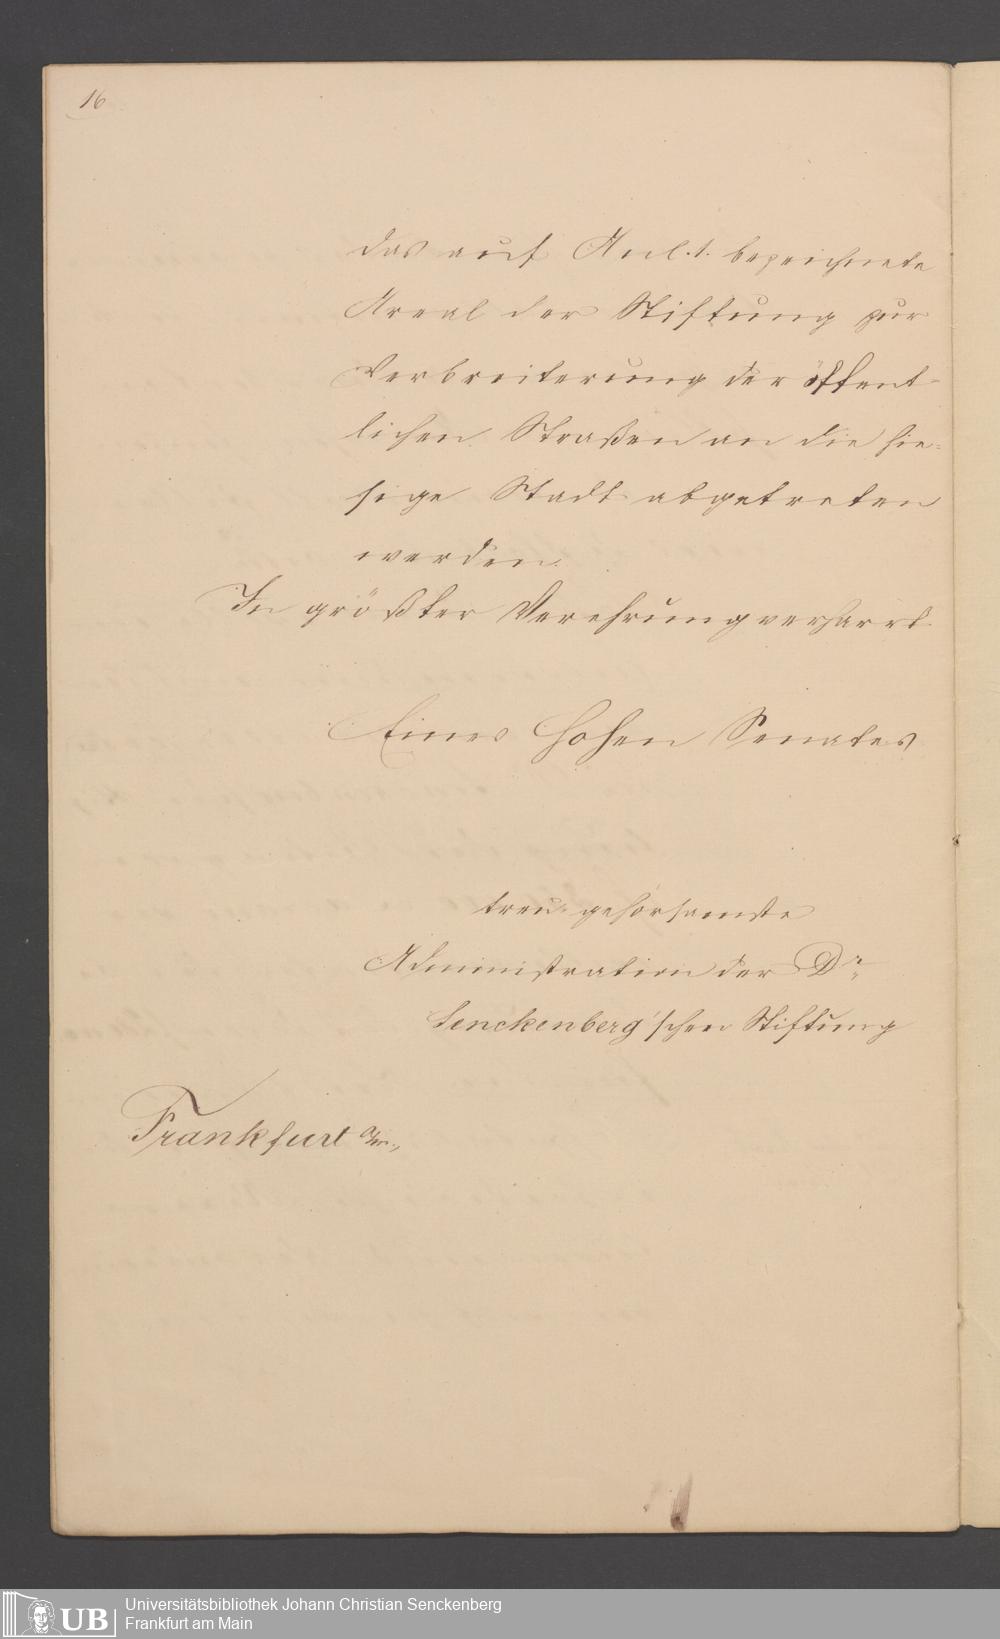 16
das auf Anl. 1. bezeichnete
Areal der Stiftung zur
Verbreiterung der öffent-
lichen Straßen an die hie-
sige Stadt abgetreten
werden.
In größter Verehrung verharrt
Eines Hohen Senates
treu-gehorsamste
Administration der Dr.
Senckenberg'schen Stiftung
Frankfurt a/m.,
UB
Universitätsbibliothek Johann Christian Senckenberg
Frankfurt am Main